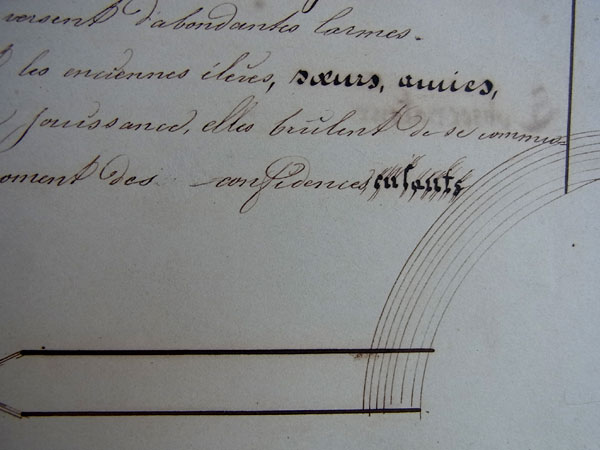 versent d'abondantes larmes.
les anciennes élèves, sœurs, amies,
jouissance, elles brûlent de se commu-
oment des confidences enfants